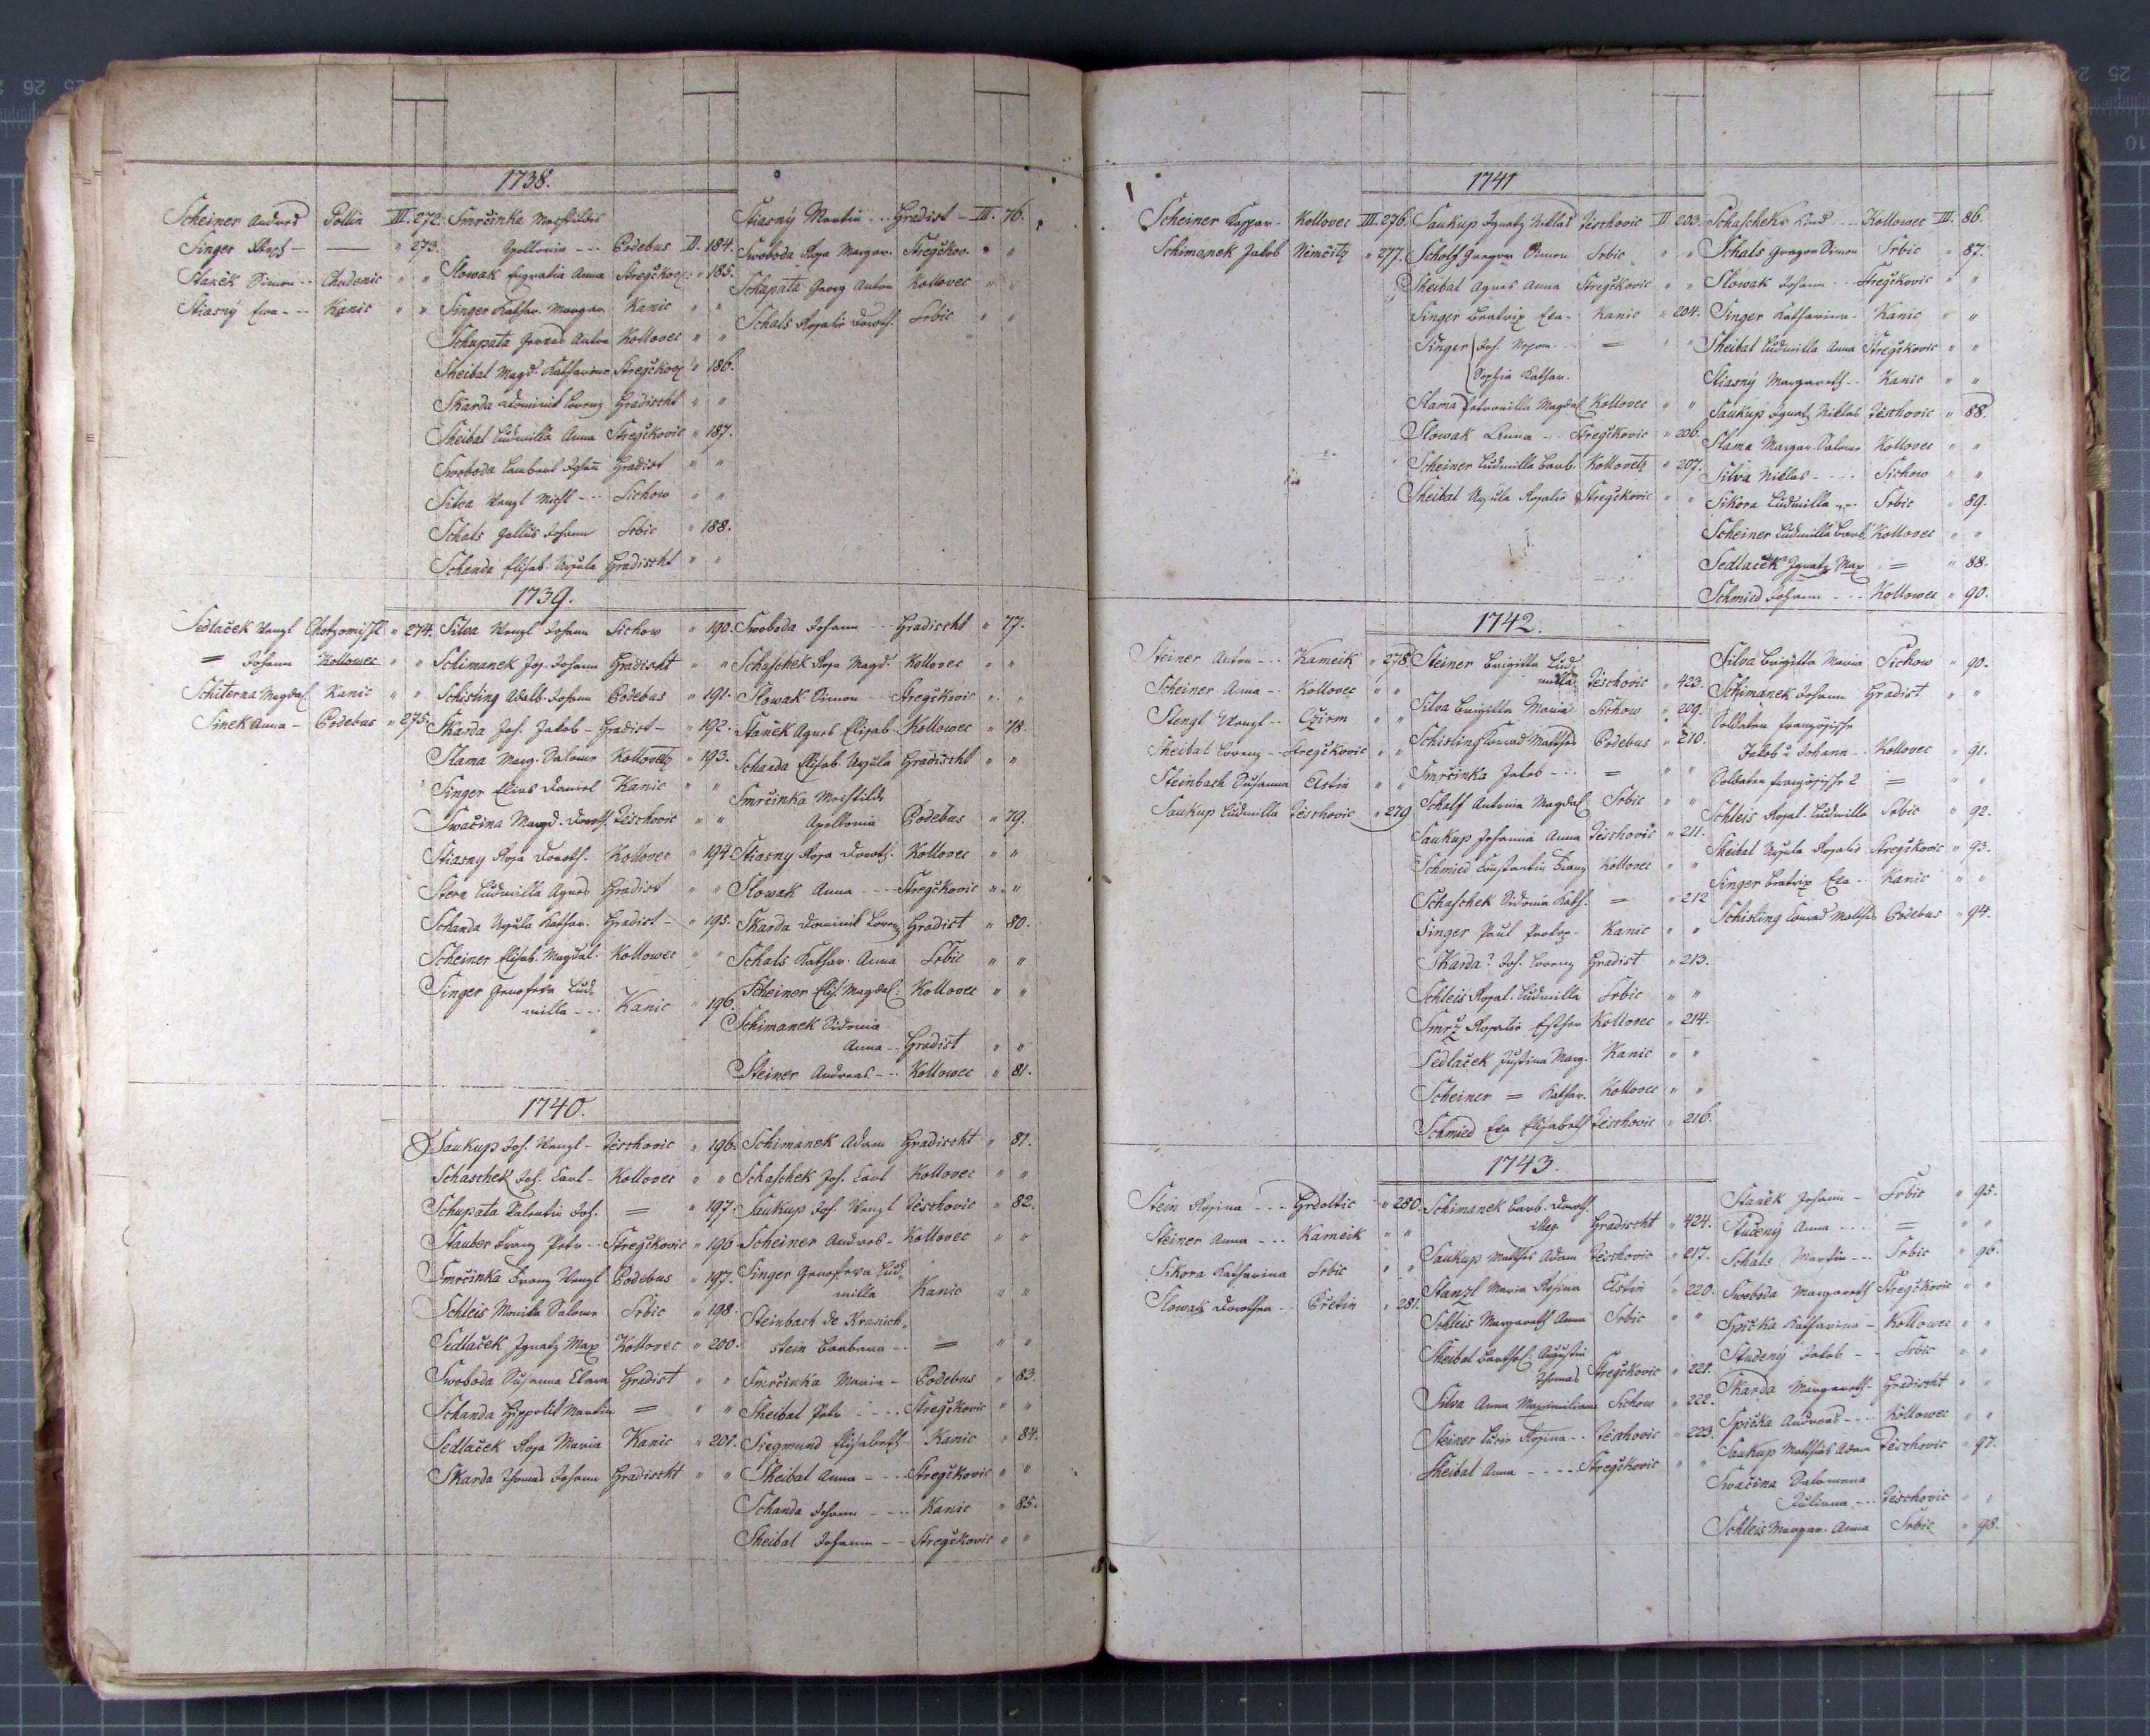 1738.
Scheiner Andreas Pollin III. 272.
Singer — " 273.
Staněk Simon -- Chudenic " "
Stiasný Eva --- Kanic " "
Smrčinka Mechtildis
Apollonia --- Podebus II. 184.
Slowak Anna Stregčkow " 185.
Singer Kathar. Margar. Kanic " "
Schupata Anton Kollovec " "
Sheibal Magd. Katharina Stregčkov " 186.
Skarda Dominik Lorenz Gradischt " "
Sheibal Ludmilla Anna Stregčkovic " 187.
Swoboda Lambert Johann Gradist " "
Silva Wenzl Michl --- Sichow " "
Schats Gallus Johann Srbic " 188.
Schanda Elisab. Ursula Gradischt " "
Stiasný Martin -- Gradist — III. 76.
Swoboda Rosa Margar. Stregčkov. " "
Schupata Georg Anton Kollovec " "
Schals Rosalie Doroth. Srbic " "
1739.
Sedlaček Wenzl Chotzomischl " 274.
= Johann Kollowec " "
Schiterna Magdal. Kanic " "
Sinek Anna — Podebus " 275.
Silva Wenzl Johann Sichow " 190.
Schimanek Jos. Johann Gradischt " "
Schisling Adalb. Johann Podebus " 191.
Skarda Joh. Jakob — Gradist — " 192.
Slama Marg. Salome Kollovetz " 193.
Singer Elias Daniel Kanic " "
Swačina Magd. Doroth. Teschovic " "
Stiasny Rosa Doroth. Kollovec " 194.
Stera Ludmilla Agnes Gradist " "
Schanda Ursula Kathar. Gradist — " 195.
Scheiner Elisab. Magdal. Kollowec " "
Singer Genofeva Lud=
milla --- Kanic " 196.
Swoboda Johann --- Gradischt " 77.
Schaschek Rosa Magd. Kollovec " "
Slowak Simon --- Stregčkovic " "
Stanek Agnes Elisab. Kollowec " 78.
Schanda Elisab. Ursula Gradischt " "
Smrčinka Mechtild
Apollonia Podebus " 79.
Stiasny Rosa Doroth. Kollovec " "
Slowak Anna --- Stregčkovic " "
Skarda Dominik Lorenz Gradist " 80.
Schals Kathar. Anna Srbic " "
Scheiner Elis. Magdal. Kollovec " "
Schimanek Sidonia
Anna -- Gradist " "
Steiner Andreas -- Kollowec " 81.
1740.
Saukup Joh. Wenzl — Teschovic " 196.
Schaschek Joh. Carl — Kollovec " "
Schupata Valentin Joh. = " 197.
Stauber Franz Peter -- Stregčkovic " 196
Smrčinka Franz Wenzl Podebus " 197.
Schleis Monika Salome Srbic " 198.
Sedlaček Ignatz Max Kollovec " 200.
Swoboda Susanna Clara Gradist " "
Schanda Hippolit Martin = " "
Sedlaček Rosa Maria Kanic " 201.
Skarda Thomas Johann Gradischt " "
Schimanek Adam Gradischt " 81.
Schaschek Joh. Carl Kollovec " "
Saukup Joh. Wenzl Teschovic " 82.
Scheiner Andreas — Kollovec " "
Singer Genofeva Lud=
milla Kanic " "
Steinbach de Kranich=
stein Barbara -- = " "
Smrčinka Maria — Podebus " 83.
Sheibal Peter --- Stregčkovic " "
Siegmund Elisabeth Kanic " 84.
Sheibal Anna --- Stregčkovic " "
Schanda Johann --- Kanic " 85.
Sheibal Johann -- Stregčkovic " "
1741
Scheiner Kaspar — Kollovec III. 276.
Schimanek Jakob Němčitz " 277.
Saukup Ignatz Niklas Teschovic II 203.
Scholf Gregor Simon Srbic " "
Sheibal Agnes Anna Stregčkovic " "
Singer Beatrix Eva — Kanic " 204.
Singer Joh. Nepom. -- = " "
Sophia Kathar.
Slama Petronilla Magdal. Kollovec " "
Slowak Anna --- Stregčkovic " 206.
Scheiner Ludmilla Barb. Kollovetz " 207.
Sheibal Ursula Rosalie Stregčkovic " "
Schascheks Kind --- Kollowec III. 86.
Schals Gregor Simon Srbic " 87.
Slowak Johann --- Stregčkovic " "
Singer Katharina — Kanic " "
Sheibal Ludmilla Anna Stregčkovic " "
Stiasný Margareth -- Kanic " "
Saukup Ignatz Niklas Teschovic " 88.
Slama Margar. Salome Kollovec " "
Silva Niklas --- Sichow " "
Sikora Ludmilla --- Srbic " 89.
Scheiner Ludmilla Barb. Kollovec " "
Sedlaček Ignatz Max = " 88.
Schmied Johann --- Kollowec " 90.
1742.
Steiner Anton --- Kameik " 278.
Scheiner Anna — Kollovec " "
Stengl Wenzl -- Czirm " "
Sheibal Lorenz -- Stregčkovic " "
Steinbach Susanna Elstin " "
Saukup Ludmilla Teschovic " 279
Steiner Brigitta Lud=
milla Teschovic " 423.
Silva Brigitta Maria Sichow " 209.
Schisling Konrad Mathes Podebus " 210.
Smrčinka Jakob --- = " "
Schalf Antonia Magdal. Srbic " "
Saukup Johanna Anna Teschovic " 211.
Schmied Constantin Franz Kollovec " "
Schaschek Sidonia Kath. = " 212
Singer Paul Prokop — Kanic " "
Skarda? Joh. Lorenz Gradist " 213.
Schleis Rosal. Ludmilla Srbic " "
Smrž Rosalie Esther Kollovec " 214.
Sedlaček Justina Marg. Kanic " "
Scheiner = Kathar. Kollovec " "
Schmied Eva Elisabeth Teschovic " 216.
Silva Brigitta Maria Sichow " 90.
Schimanek Johann Gradist " "
Soldaten französische
Jakob u Johann -- Kollovec " 91.
Soldaten französische 2 = " "
Schleis Rosal. Ludmilla Srbic " 92.
Sheibal Ursula Rosalie Stregčkovic " 93.
Singer Beatrix Eva -- Kanic " "
Schisling Konrad Mathes Podebus " 94.
1743.
Stein Rosina --- Grdoltic " 280.
Steiner Anna --- Kameik " "
Sikora Katharina Srbic " "
Slowak Dorothea -- Přetin " 281.
Schimanek Barb. Doroth.
Gradischt " 424.
Saukup Mathes Adam Teschovic " 217.
Stanzl Maria Rosina Elstin " 220.
Schleis Margareth Anna Srbic " "
Sheibal Barthol. Augustin
Thomas Stregčkovic " 221.
Silva Anna Maximiliana Sichow " 222.
Steiner Lucie Rosina -- Teschovic " 223.
Sheibal Anna ---- Stregčkovic " "
Staněk Johann — Srbic " 95.
Studený Anna --- = " "
Schals Martin --- Srbic " 96.
Swoboda Margareth Stregčkovic " "
Spička Katharina — Kollowec " "
Studený Jakob -- Srbic " "
Skarda Margareth — Gradischt " "
Spička Andreas --- Kollowec " "
Saukup Mathias Adam Teschovic " 97.
Swačina Salomena
Juliana --- Teschovic " "
Schleis Margar. Anna Srbic " 98.